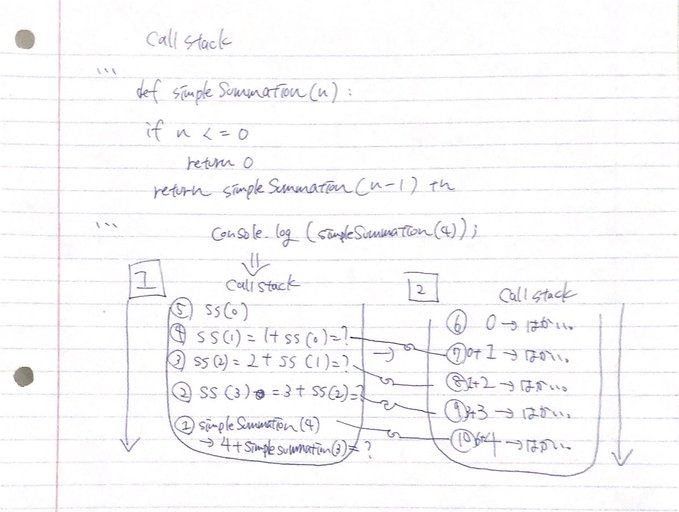 Call stack
```
def simpleSummation(n):
if n <= 0
return 0
return simpleSummation(n-1) + n
```
console.log (simpleSummation(4));
1
Call stack
⑤ SS(0)
④ SS(1) = 1 + SS(0) = ?
③ SS(2) = 2 + SS(1) = ?
② SS(3) = 3 + SS(2) = ?
① simpleSummation(4)
→ 4 + simpleSummation(3) = ?
2
Call stack
⑥ 0 → はかい。
⑦ 0+1 → はかい。
⑧ 1+2 → はかい。
⑨ 3+3 → はかい。
⑩ 6+4 → はかい。